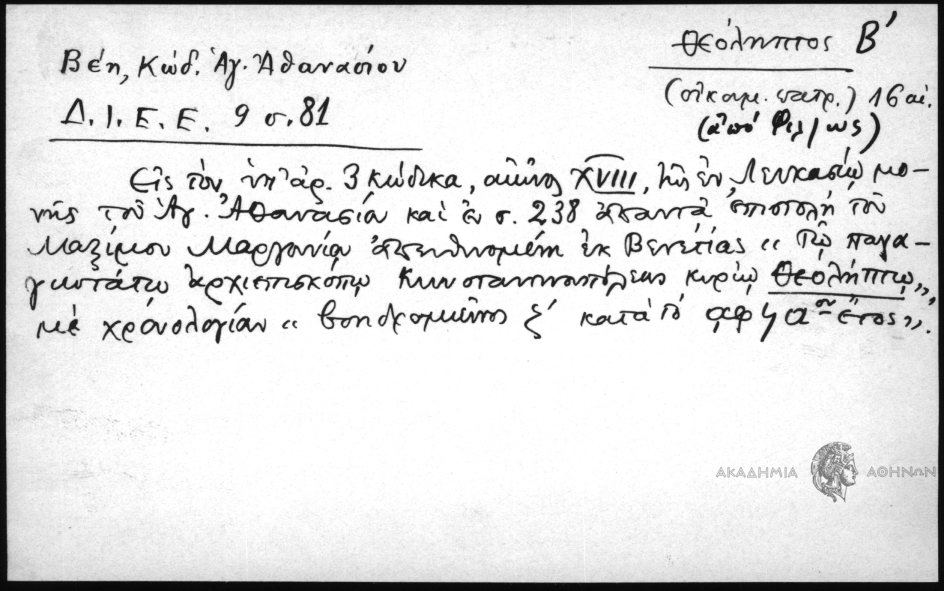 Θεόληπτος Β'
(οἰκουμ. πατρ.) 16 αἰ.
(ἀπό Φιλ/πως)
Βέη, Κώδ. Ἁγ. Ἀθανασίου
Δ. Ι. Ε. Ε. 9 σ. 81
Εἰς τόν ὑπ' ἀρ. 3 κώδικα, αἰῶνος XVIII, τῆς ἐν Λευκασίῳ μο-
νῆς τοῦ Ἁγ. Ἀθανασίου καί ἐν σ. 238 ἀπαντᾶ ἐπιστολή τοῦ
Μαξίμου Μαργουνίου ἀπευθυνομένη ἐκ Βενετίας "Τῷ παναγ-
ιωτάτῳ ἀρχιεπισκόπῳ Κωνσταντινουπόλεως κυρίῳ Θεολήπτῳ",
μέ χρονολογίαν "βοηδρομιῶνος ξ' κατά τό αφϟα^ον ἔτος".
ΑΚΑΔΗΜΙΑ ΑΘΗΝΩΝ